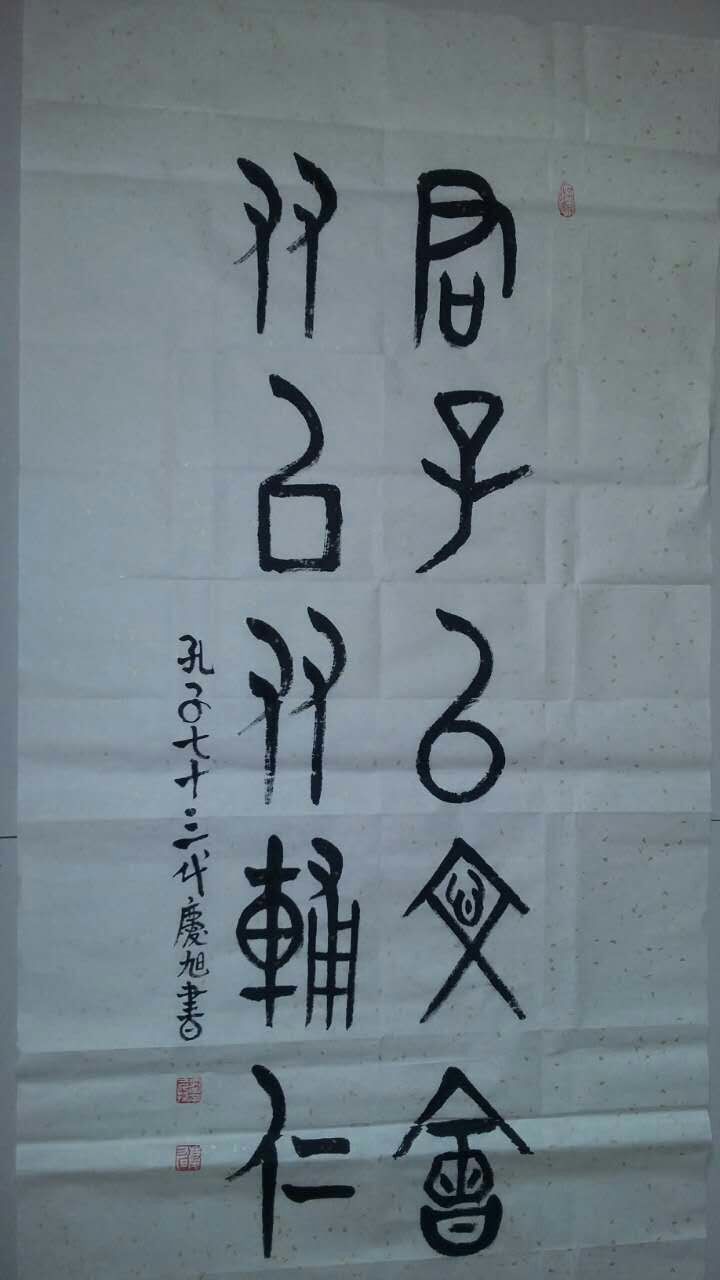 君子以文會
友以友輔仁
孔子七十三代慶旭書